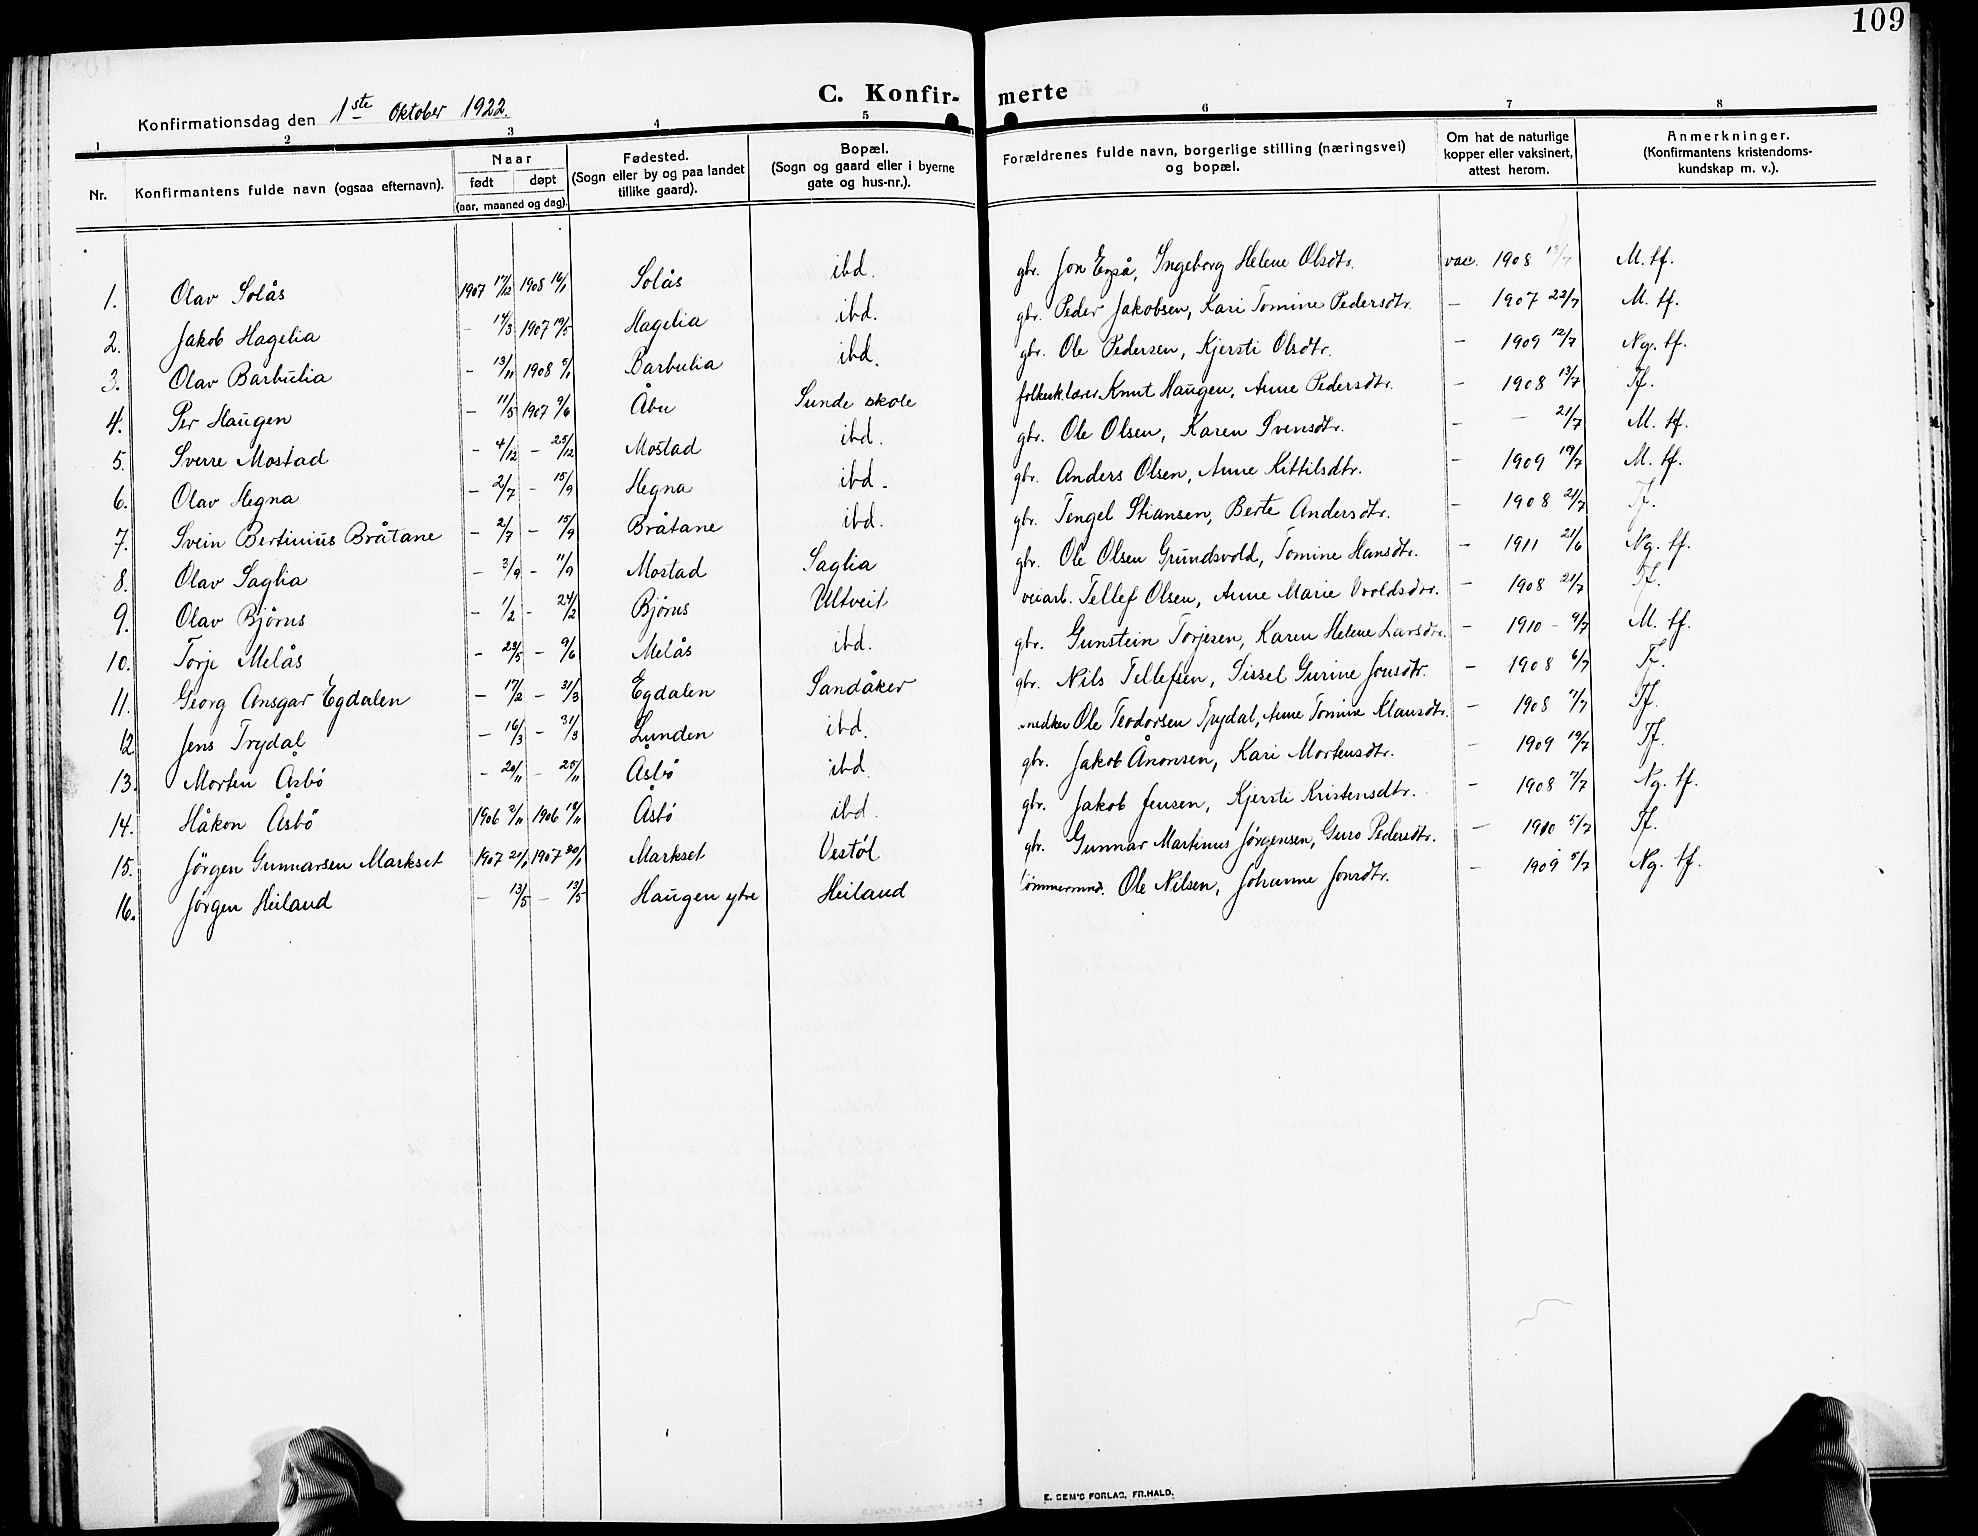 109
C. Konfirmerte
Konfirmationsdag den 1ste Oktober 1922.
1 2 3 4 5 6 7 8
Nr. Konfirmantens fulde navn (ogsaa efternavn). Naar født døpt (aar, maaned og dag). Fødested. (Sogn eller by og paa landet tillike gaard). Bopæl. (Sogn og gaard eller i byerne gate og hus-nr.). Forældrenes fulde navn, borgerlige stilling (næringsvei) og bopæl. Om hat de naturlige kopper eller vaksinert, attest herom. Anmerkninger. (Konfirmantens kristendomskundskap m. v.).
1. Olav Solås 1907 17/12 1908 16/1 Solås ibd. gbr. Jon Egså, Ingeborg Helene Olsdtr. vac. 1908 M. tf.
2. Jakob Hagelia - 14/3 1907 19/5 Hagelia ibd. gbr. Peder Jakobsen, Kari Tomine Pedersdtr. - 1907 22/7 M. tf.
3. Olav Barbulia - 13/11 1908 5/1 Barbulia ibd. gbr. Ole Pedersen, Kjersti Olsdtr. - 1909 12/7 Ng. tf.
4. Per Haugen - 11/5 1907 9/6 Åbu Sunde skole folkesk.lærer Knut Haugen, Anne Pedersdtr. - 1908 13/7 Tf.
5. Sverre Mostad - 4/12 - 25/12 Mostad ibd. gbr. Ole Olsen, Karen Svensdtr. - - 21/7 M. tf.
6. Olav Hegna - 2/7 - 15/9 Hegna ibd. gbr. Anders Olsen, Anne Kittilsdtr. - 1909 19/7 M. tf.
7. Svein Bertinius Bråtane - 2/7 - 15/9 Bråtane ibd. gbr. Tengel Stiansen, Berte Andersdtr. - 1908 21/7 Tf.
8. Olav Saglia - 3/9 - 11/9 Mostad Saglia gbr. Ole Olsen Grundsvold, Tomine Hansdtr. - 1911 21/6 Ng. tf.
9. Olav Bjørus - 1/2 - 24/2 Bjørus Ultveit veiarb. Tellef Olsen, Anne Marie Vroldsdtr. - 1908 21/7 Tf.
10. Torje Melås - 23/5 - 9/6 Melås ibd. gbr. Gunstein Torjesen, Karen Helene Larsdtr. - 1910 - 9/7 M. tf.
11. Georg Ansgar Egdalen - 17/2 - 31/3 Egdalen Sandåker gbr. Nils Tellefsen, Sissel Gurine Jonsdtr. - 1908 6/7 Tf.
12 Jens Trydal - 16/3 - 31/3 Lunden ibd. snedker Ole Teodorsen Trydal, Anne Tomine Klausdtr. - 1908 7/7 Tf.
13. Morten Åsbø - 20/11 - 25/11 Åsbø ibd. gbr. Jakob Ånonsen, Kari Mortensdtr. - 1909 19/7 Tf.
14. Håkon Åsbø 1906 2/11 1906 18/11 Åsbø ibd. gbr. Jakob Jensen, Kjersti Kristensdtr. - 1908 7/7 Ng. tf.
15. Jørgen Gunnarsen Markset 1907 1907 Markset Vestøl gbr. Gunnar Martinus Jørgensen, Guro Pedersdtr. - 1910 5/7 Tf.
16. Jørgen Heiland - 13/5 - 13/5 Haugen ytre Heiland tømmermnd. Ole Nilsen, Johanne Jonsdtr. - 1909 5/7 Ng. tf.
E. SEM'S FORLAG, FR.HALD.